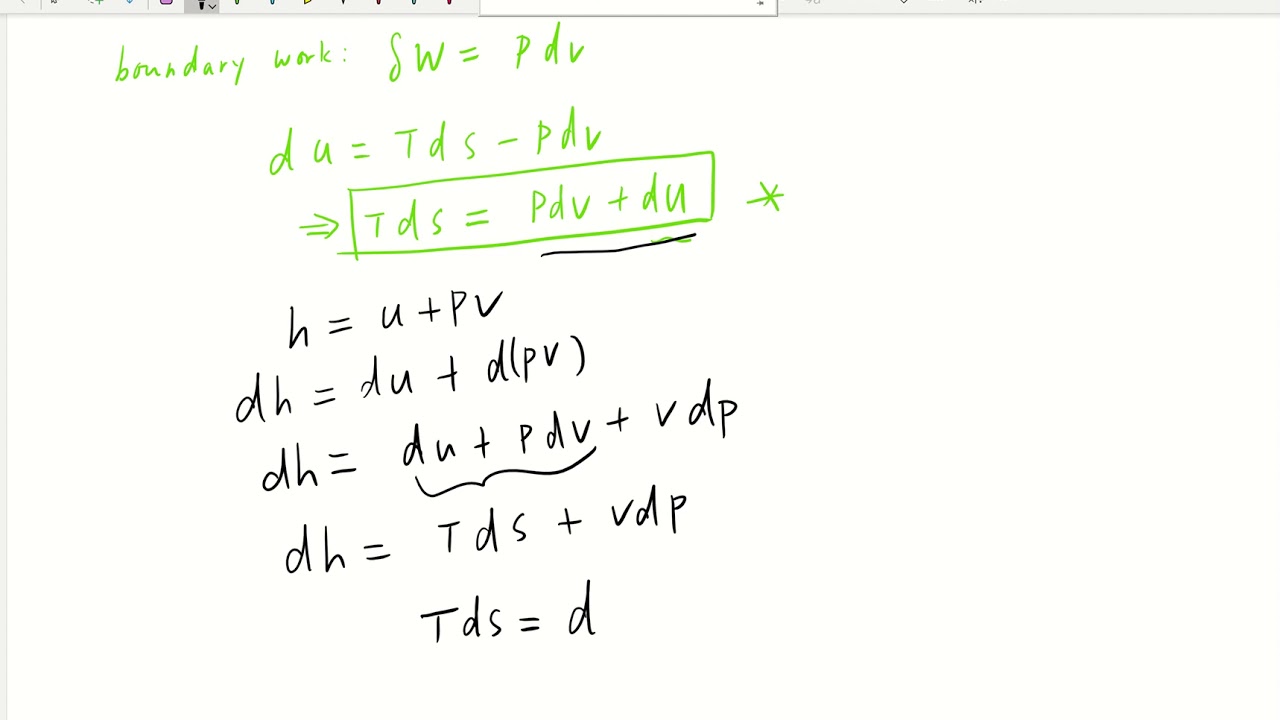 boundary work: δW = Pdv
du = Tds - Pdv
⇒ Tds = Pdv + du *
h = u + Pv
dh = du + d(Pv)
dh = du + Pdv + vdp
dh = Tds + vdp
Tds = d